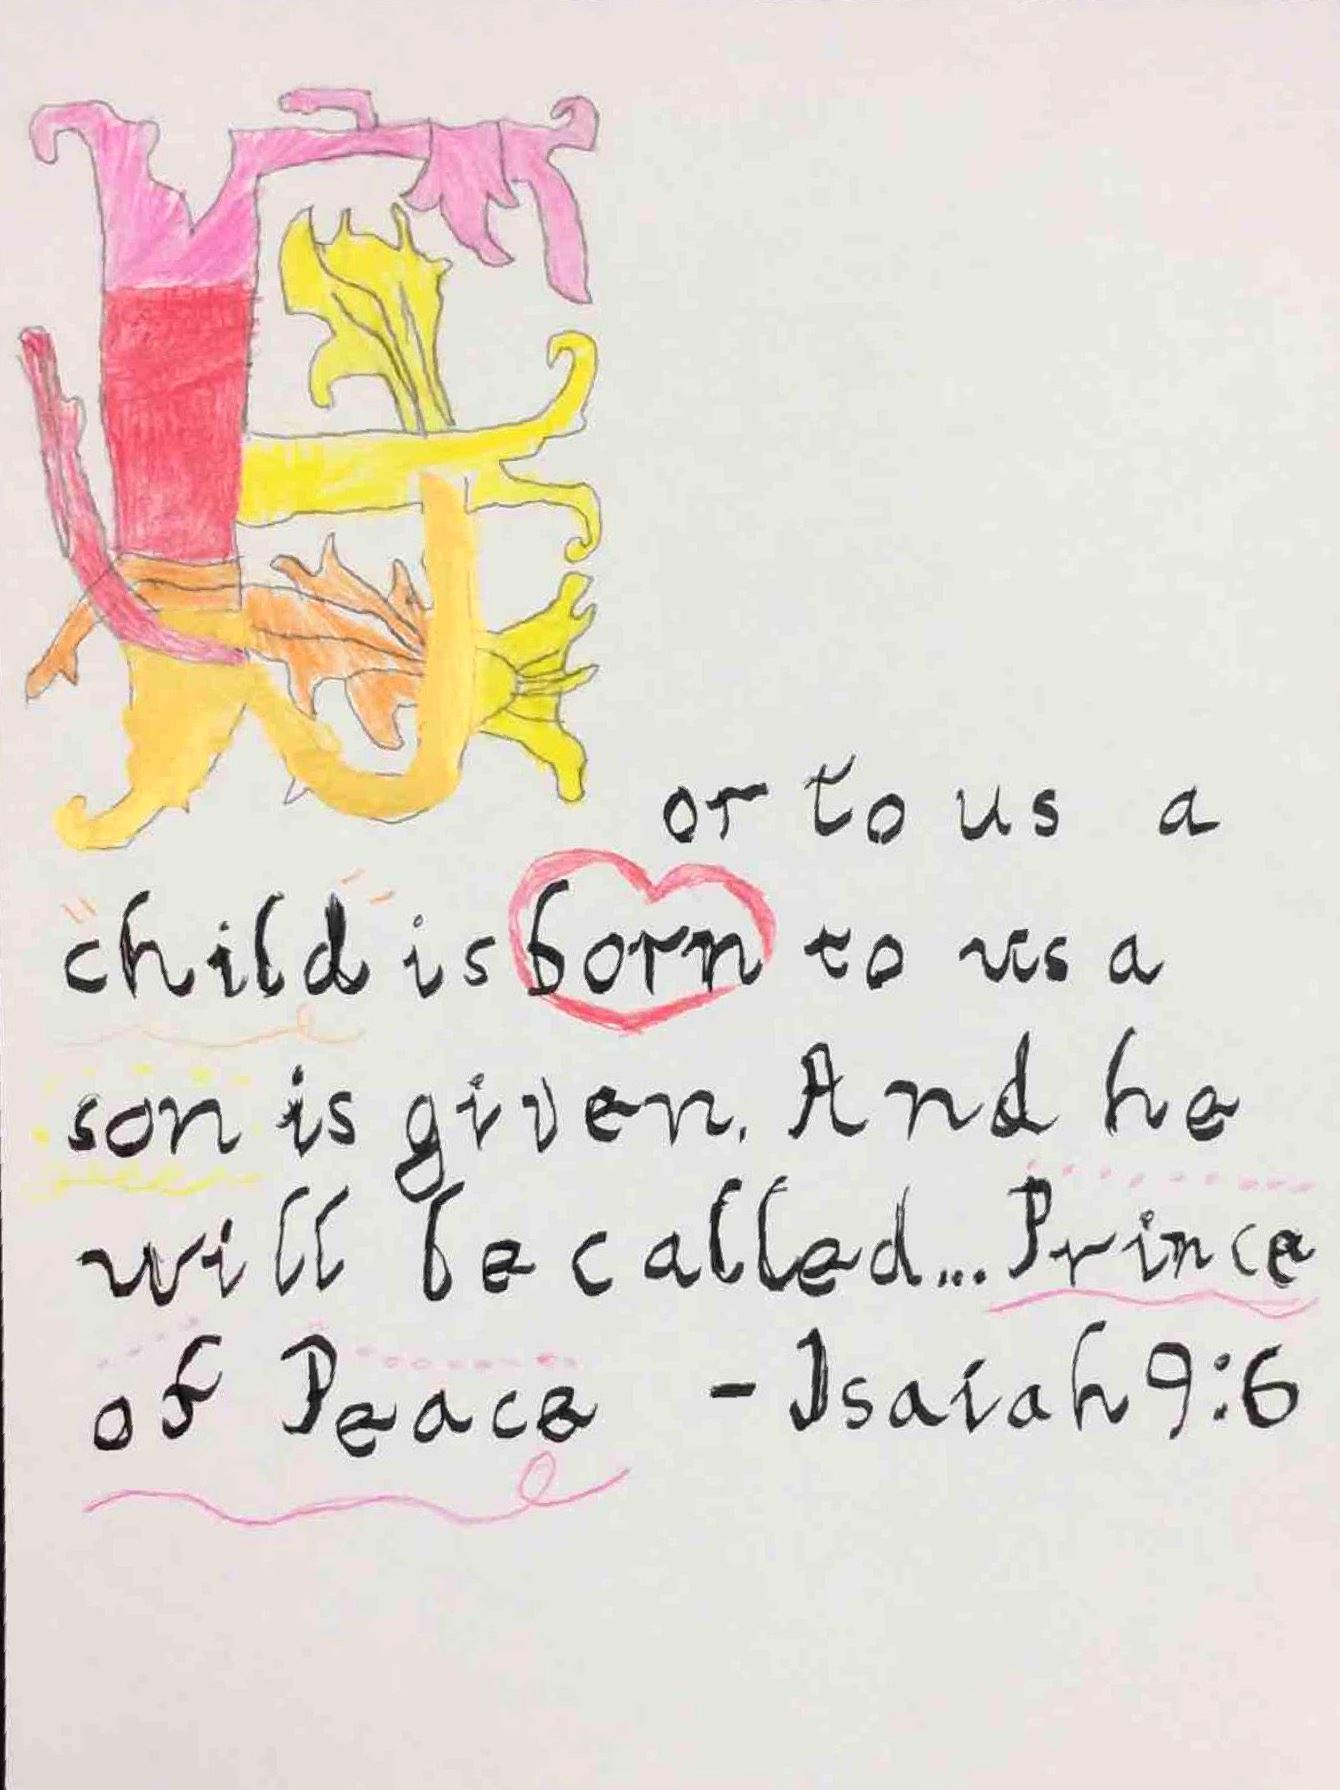 For to us a
child is born to us a
son is given. And he
will be called... Prince
of Peace - Isaiah 9:6